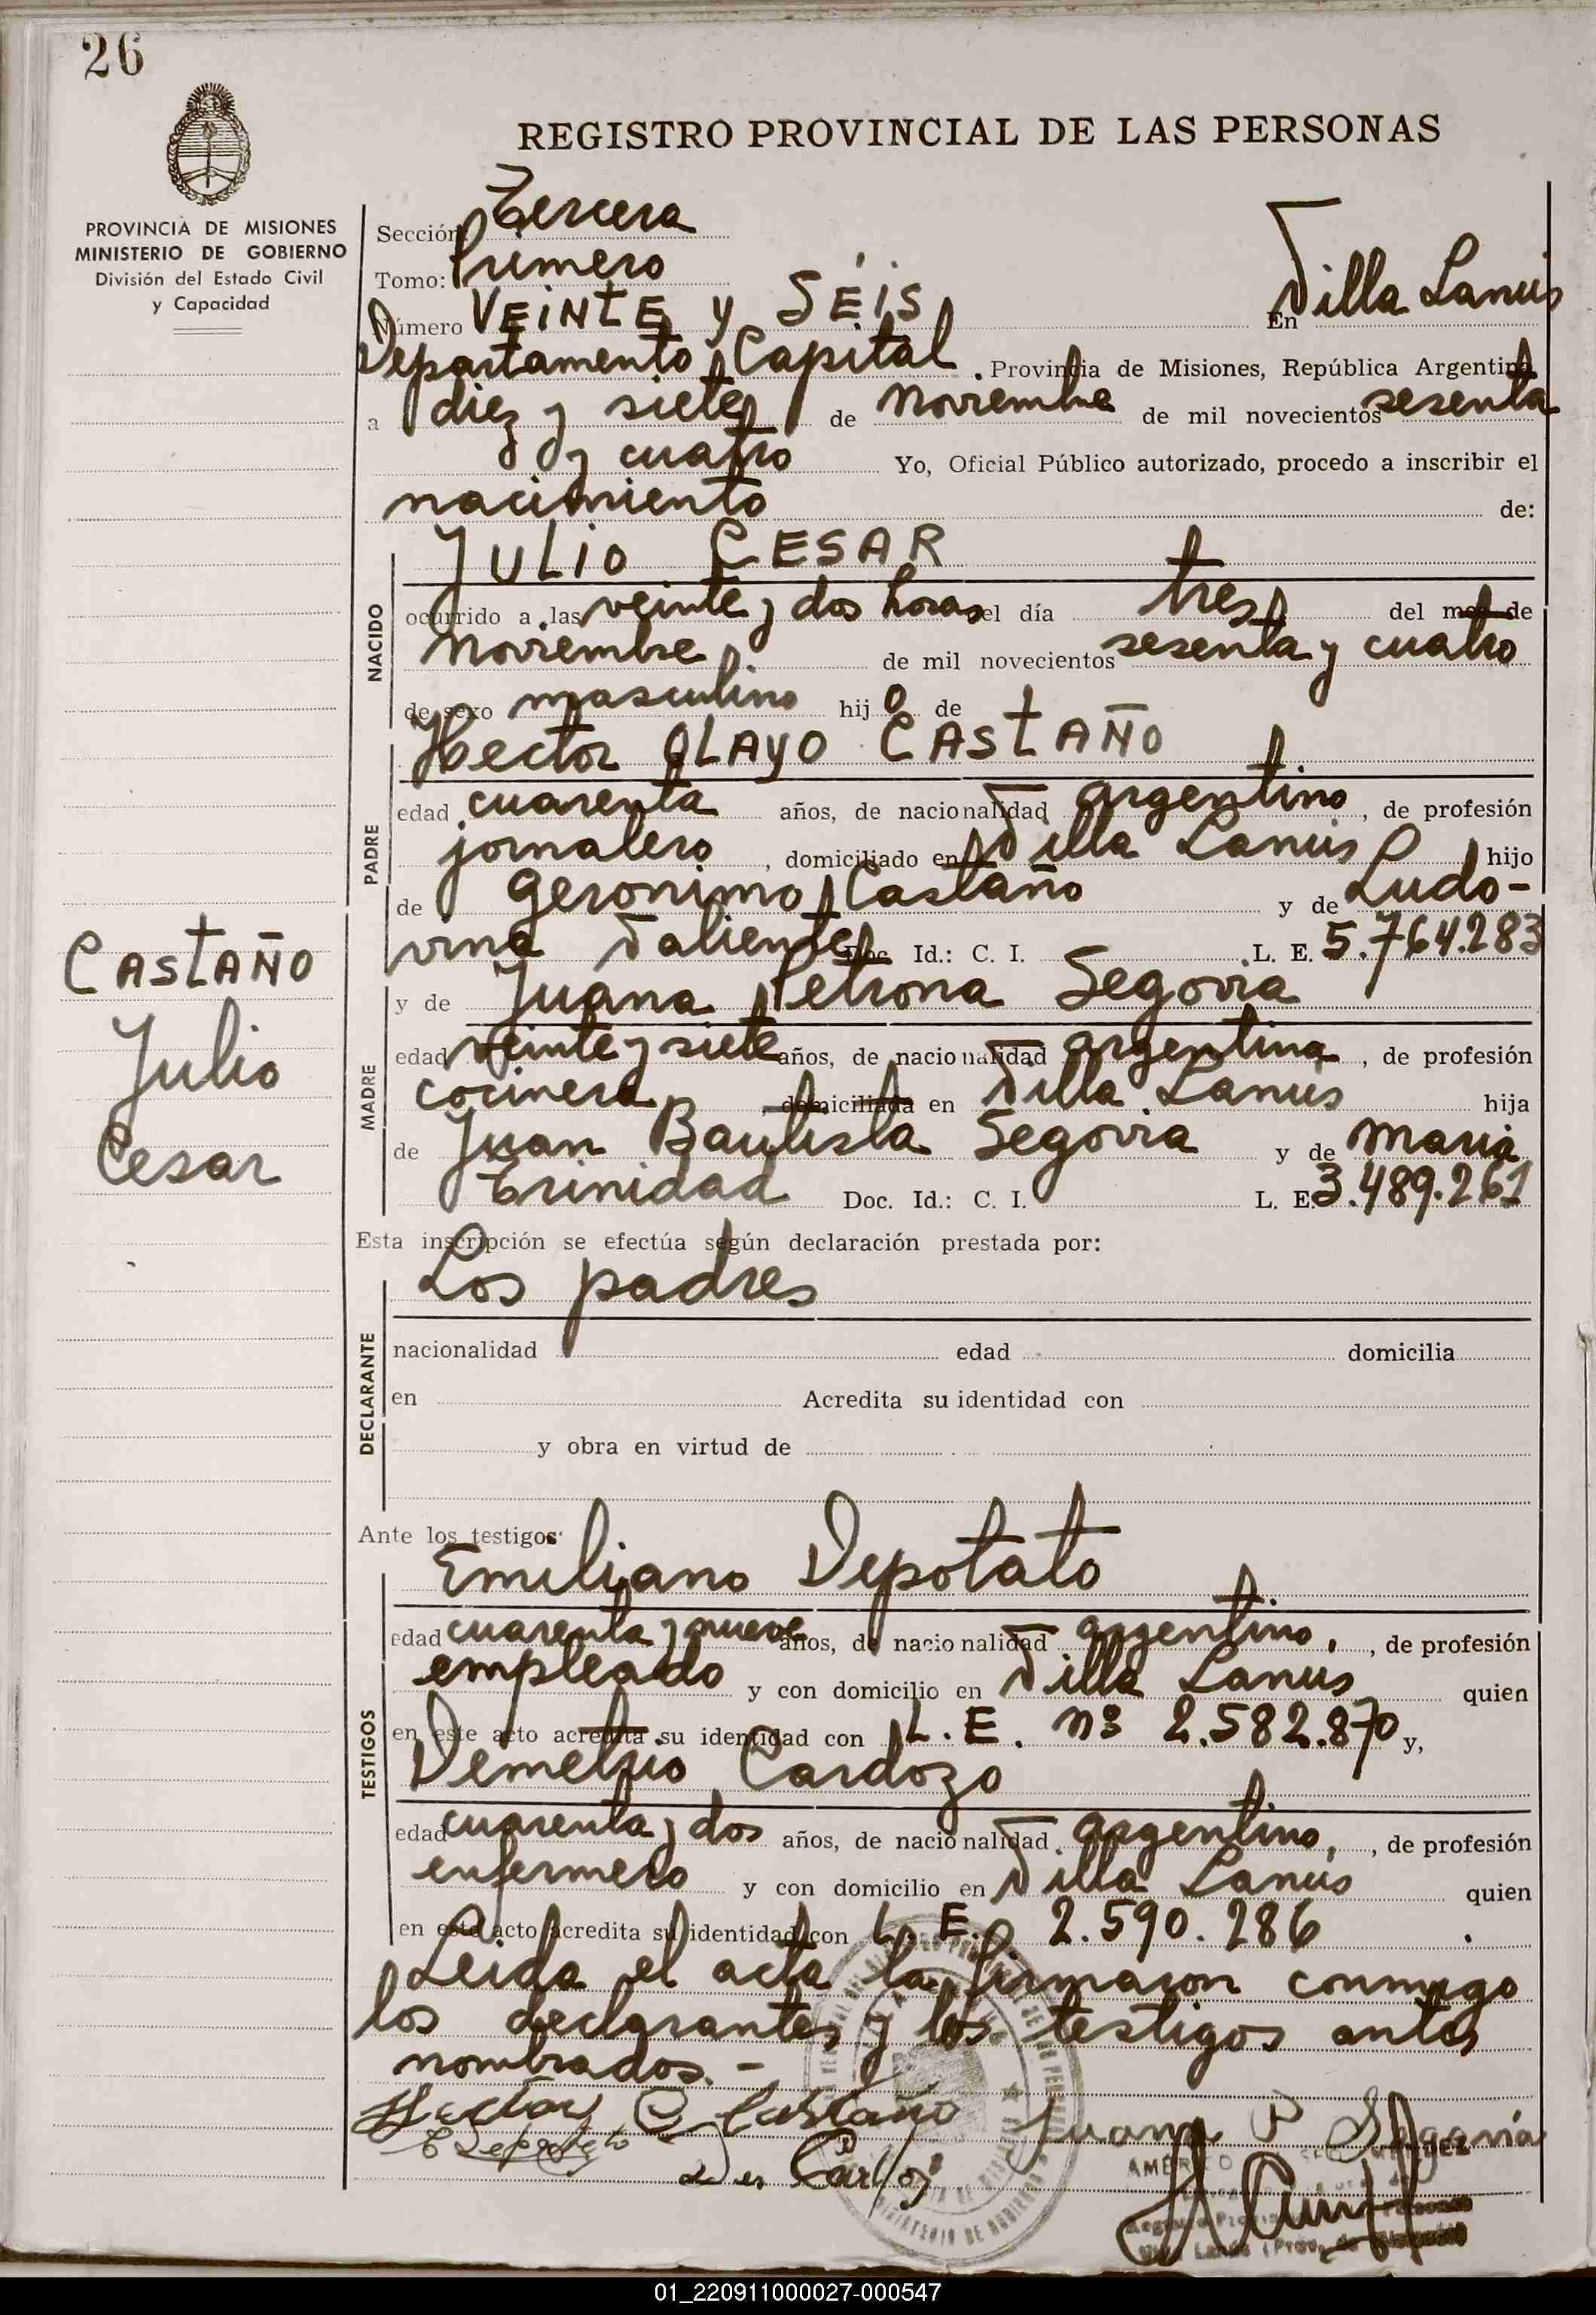 26
REGISTRO PROVINCIAL DE LAS PERSONAS
PROVINCIA DE MISIONES
MINISTERIO DE GOBIERNO
División del Estado Civil
y Capacidad
Sección: Tercera
Tomo: Primero
Número VEINTE y SEIS En Villa Lanus
Departamento Capital. Provincia de Misiones, República Argentina
a diez y siete de Noviembre de mil novecientos sesenta
y cuatro Yo, Oficial Público autorizado, procedo a inscribir el
nacimiento de:
NACIDO
JULIO CESAR
ocurrido a las veinte y dos horas el día tres del mes de
Noviembre de mil novecientos sesenta y cuatro
de sexo masculino hijo de
PADRE
Hector OLAYO CASTAÑO
edad cuarenta años, de nacionalidad argentino, de profesión
jornalero, domiciliado en Villa Lanus hijo
de Geronimo Castaño y de Ludo-
vina Valiente Doc. Id.: C. I. L. E. 5.764.283
CASTAÑO
Julio
Cesar
MADRE
y de Juana Petrona Segovia
edad veinte y siete años, de nacionalidad argentina, de profesión
cocinera, domiciliada en Villa Lanús hija
de Juan Bautista Segovia y de Maria
Trinidad Doc. Id.: C. I. L. E. 3.489.261
Esta inscripción se efectúa según declaración prestada por:
DECLARANTE
Los padres
nacionalidad edad domicilia
en Acredita su identidad con
y obra en virtud de
Ante los testigos:
TESTIGOS
Emiliano Depotato
edad cuarenta y nueve años, de nacionalidad argentino, de profesión
empleado y con domicilio en Villa Lanus quien
en este acto acredita su identidad con L. E. nº 2.582.870 y,
Demetrio Cardozo
edad cuarenta y dos años, de nacionalidad argentino, de profesión
enfermero y con domicilio en Villa Lanús quien
en este acto acredita su identidad con L. E. 2.590.286
Leida el acta la firmaron conmigo
los declarantes y los testigos antes
nombrados. -
Hector O Castaño Juana P Segovia
E Depotato
AMÉRICO
01_220911000027-000547